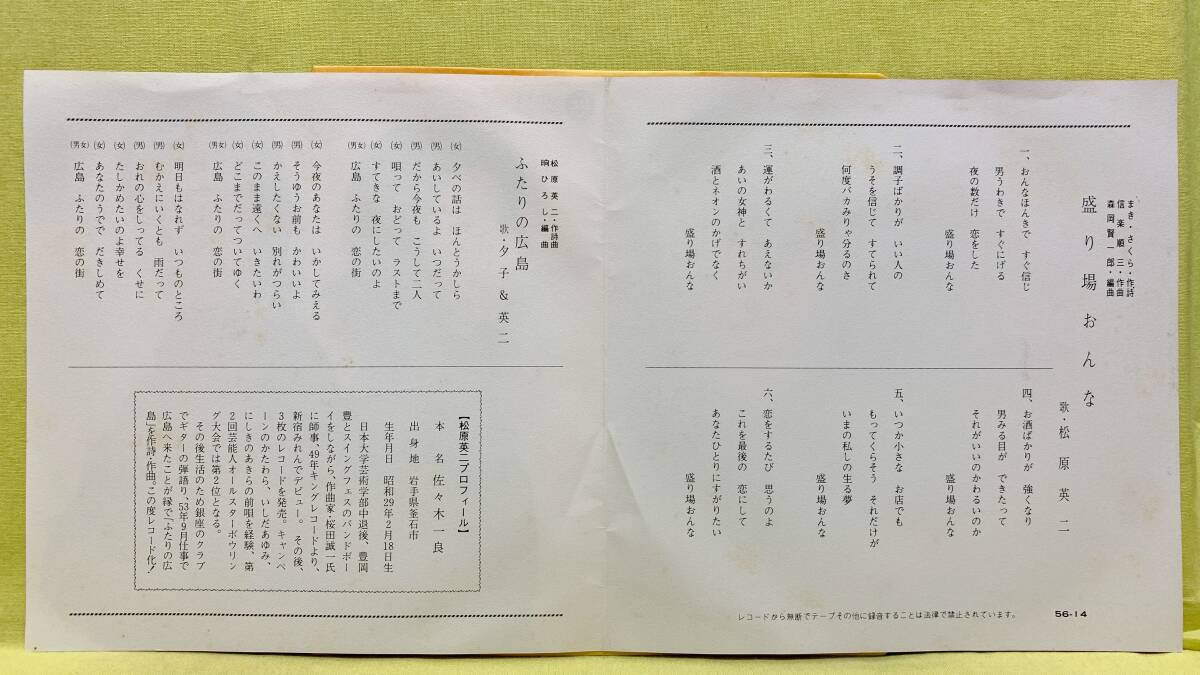 盛り場おんな
まき・さくら・作詩
信楽順三・作曲
森岡賢一郎・編曲
歌・松原英二
一、おんなほんきで すぐ信じ
男うわきで すぐにげる
夜の数だけ 恋をした
盛り場おんな
二、調子ばかりが いい人の
うそを信じて すてられて
何度バカみりゃ分るのさ
盛り場おんな
三、運がわるくて あえないか
あいの女神と すれちがい
酒とネオンのかげでなく
盛り場おんな
四、お酒ばかりが 強くなり
男みる目が できたって
それがいいのかわるいのか
盛り場おんな
五、いつか小さな お店でも
もってくらそう それだけが
いまの私しの生る夢
盛り場おんな
六、恋をするたび 思うのよ
これを最後の 恋にして
あなたひとりにすがりたい
盛り場おんな
レコードから無断でテープその他に録音することは法律で禁止されています。
56-14
松原英二・作詩曲
晌ひろし・編曲
ふたりの広島
歌・夕子&英二
(女) 夕べの話は ほんとうかしら
(男) あいしているよ いつだって
(男) だから今夜も こうして二人
(女) 唄って おどって ラストまで
(女) すてきな 夜にしたいのよ
(男女) 広島 ふたりの 恋の街
(女) 今夜のあなたは いかしてみえる
(男) そうゆうお前も かわいいよ
(男) かえしたくない 別れがつらい
(女) このまま遠くへ いきたいわ
(女) どこまでだってついてゆく
(男女) 広島 ふたりの 恋の街
(女) 明日もはなれず いつものところ
(男) むかえにいくとも 雨だって
(男) おれの心をしってる くせに
(女) たしかめたいのよ幸せを
(女) あなたのうでで だきしめて
(男女) 広島 ふたりの 恋の街
【松原英二プロフィール】
本名 佐々木一良
出身地 岩手県釜石市
生年月日 昭和29年2月18日生
日本大学芸術学部中退後、豊岡
豊とスイングフェスのバンドボー
イをしながら、作曲家・桜田誠一氏
に師事、49年キングレコードより、
新宿みれんでデビュー。その後、
3枚のレコードを発売。キャンペ
ーンのかたわら、いしだあゆみ、
にしきのあきらの前唄を経験、第
2回芸能人オールスターボウリン
グ大会では第2位となる。
その後生活のため銀座のクラブ
でギターの弾語り、53年9月仕事で
広島へ来たことが縁で「ふたりの広
島」を作詩・作曲。この度レコード化!